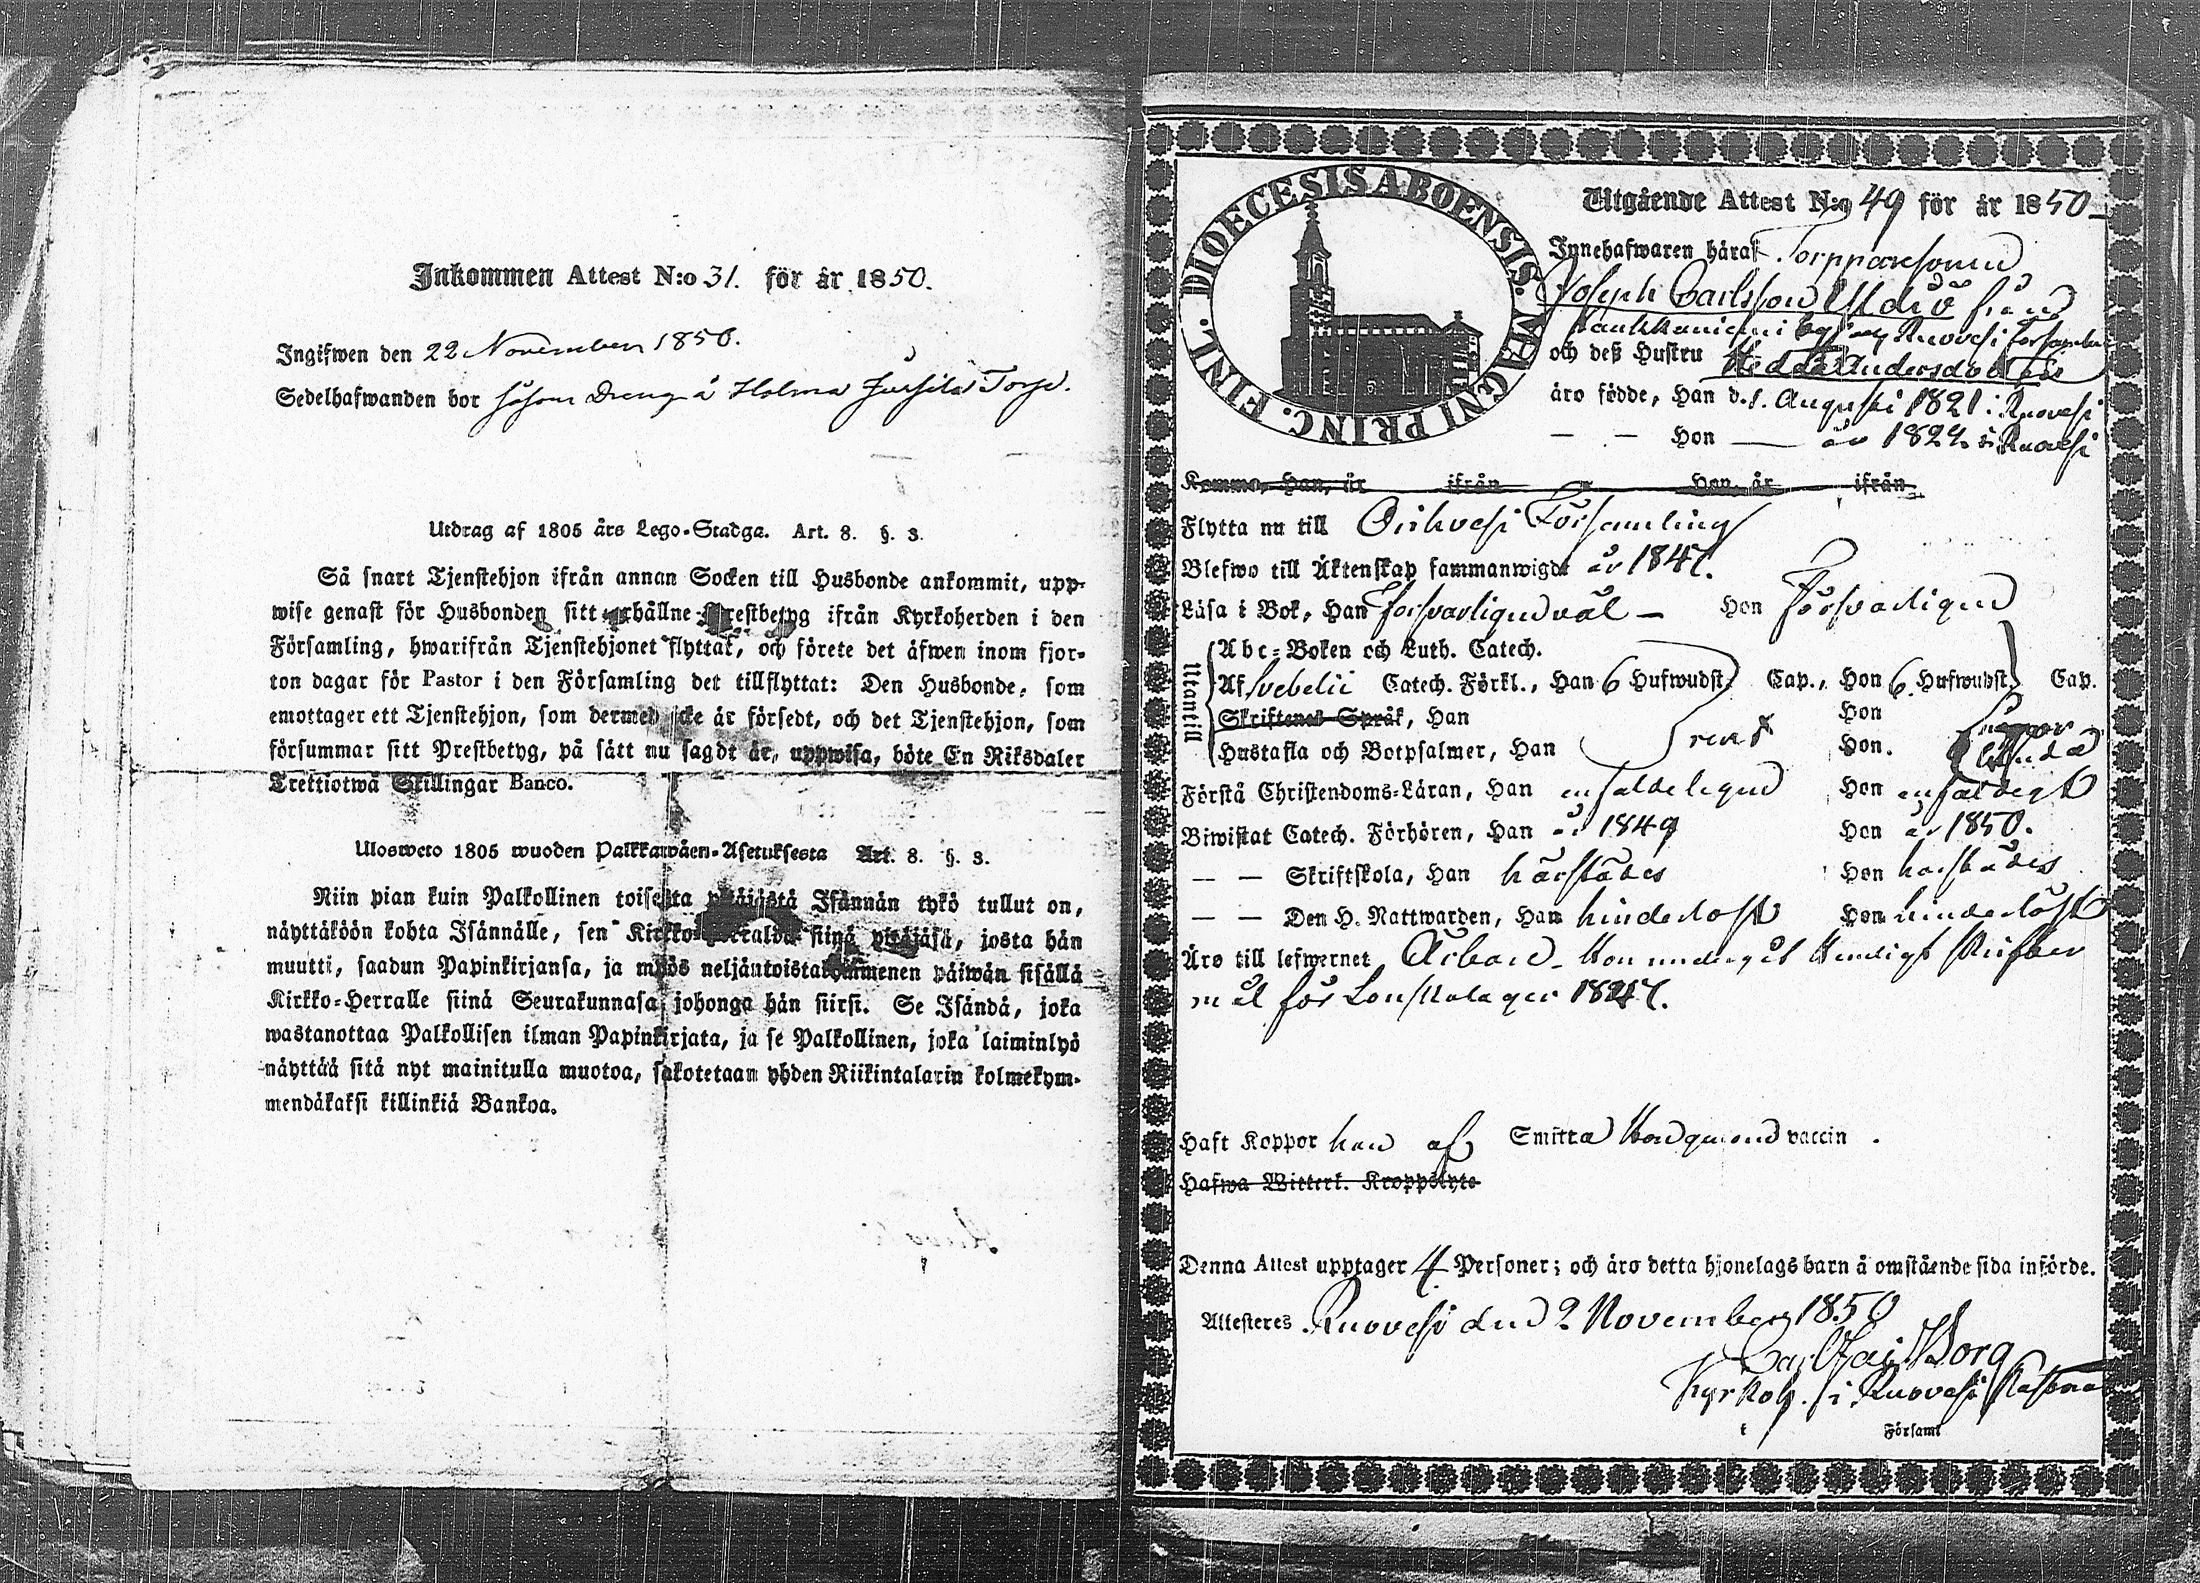 Inkommen Attest N:o 31. för år 1850.
Ingifwen den 22 November 1850.
Sedelhafwanden bor såsom Dreng å Holma Torp.
Utdrag af 1805 års Lego-Stadga. Art. 8. §. 3.
Så snart Tjenstehjon ifrån annan Socken till Husbonde ankommit, upp-
wise genast för Husbonden sitt erhållne Prestbetyg ifrån Kyrkoherden i den
Församling, hwarifrån Tjenstehjonet flyttat, och förete det äfwen inom fjor-
ton dagar för Pastor i den Församling det tillflyttat: Den Husbonde, som
emottager ett Tjenstehjon, som dermed icke är försedt, och det Tjenstehjon, som
försummar sitt Prestbetyg, på sätt nu sagdt är, uppwisa, böte En Riksdaler
Trettiotwå Skillingar Banco.
Ulosweto 1805 wuoden Palkkawäen-Asetuksesta Art. 8. §. 3.
Niin pian kuin Palkollinen toisesta pitäjästä Isännän tykö tullut on,
näyttäköön kohta Isännälle, sen Kirkko-Herralda siinä pitäjäsä, josta hän
muutti, saadun Papinkirjansa, ja myös neljäntoistakymmenen päiwän sisällä
Kirkko-Herralle siinä Seurakunnasa johonga hän siirsi. Se Isändä, joka
wastanottaa Palkollisen ilman Papinkirjata, ja se Palkollinen, joka laiminlyö
näyttää sitä nyt mainitulla muotoa, sakotetaan yhden Riikintalarin kolmekym-
mendäkaksi killinkiä Bankoa.
DIOECESIS ABOENSIS. MAGNI PRINC. FINL.
Utgående Attest N:o 49 för år 1850
Innehafwaren häraf Torpparesonen
Joseph Carlsson från
by af Ruovesi Församling
och deß Hustru Hedda Andersdotter
äro födde, Han d. 1. Augusti 1821 i Ruovesi
— — Hon — år 1824 i Ruovesi
Komme, Han, år ifrån Hon, år ifrån
Flytta nu till Orihvesi Församling
Blefwo till Äktenskap sammanwigde år 1847.
Läsa i Bok, Han försvarligen väl — Hon försvarligen
Utantill
Abc-Boken och Luth. Catech.
Af Svebelii Catech. Förkl., Han 6 Hufwudst. Cap., Hon 6. Hufwudst. Cap.
Skriftenes Språk, Han Hon
Hustafla och Botpsalmer, Han Hon.
Förstå Christendoms-Läran, Han enfaldeligen Hon enfaldigt
Biwistat Catech. Förhören, Han år 1849 Hon år 1850.
— — Skriftskola, Han härstädes Hon härstädes
— — Den H. Nattwarden, Han hinderlöst Hon hinderlöst
Äro till lefwernet Ärbare. Hon undergåt Hemligt Skrifter
mål för Lönskaläger 1847.
Haft Koppor han af Smitta Hon genom vaccin.
Hafwa Witterl. Kroppslyte
Denna Attest upptager 4 Personer; och äro detta hjonelags barn å omstående sida införde.
Attesteres Ruovesi den 2 November 1850
Borg
Kyrkoh. i Ruovesi
i Församl